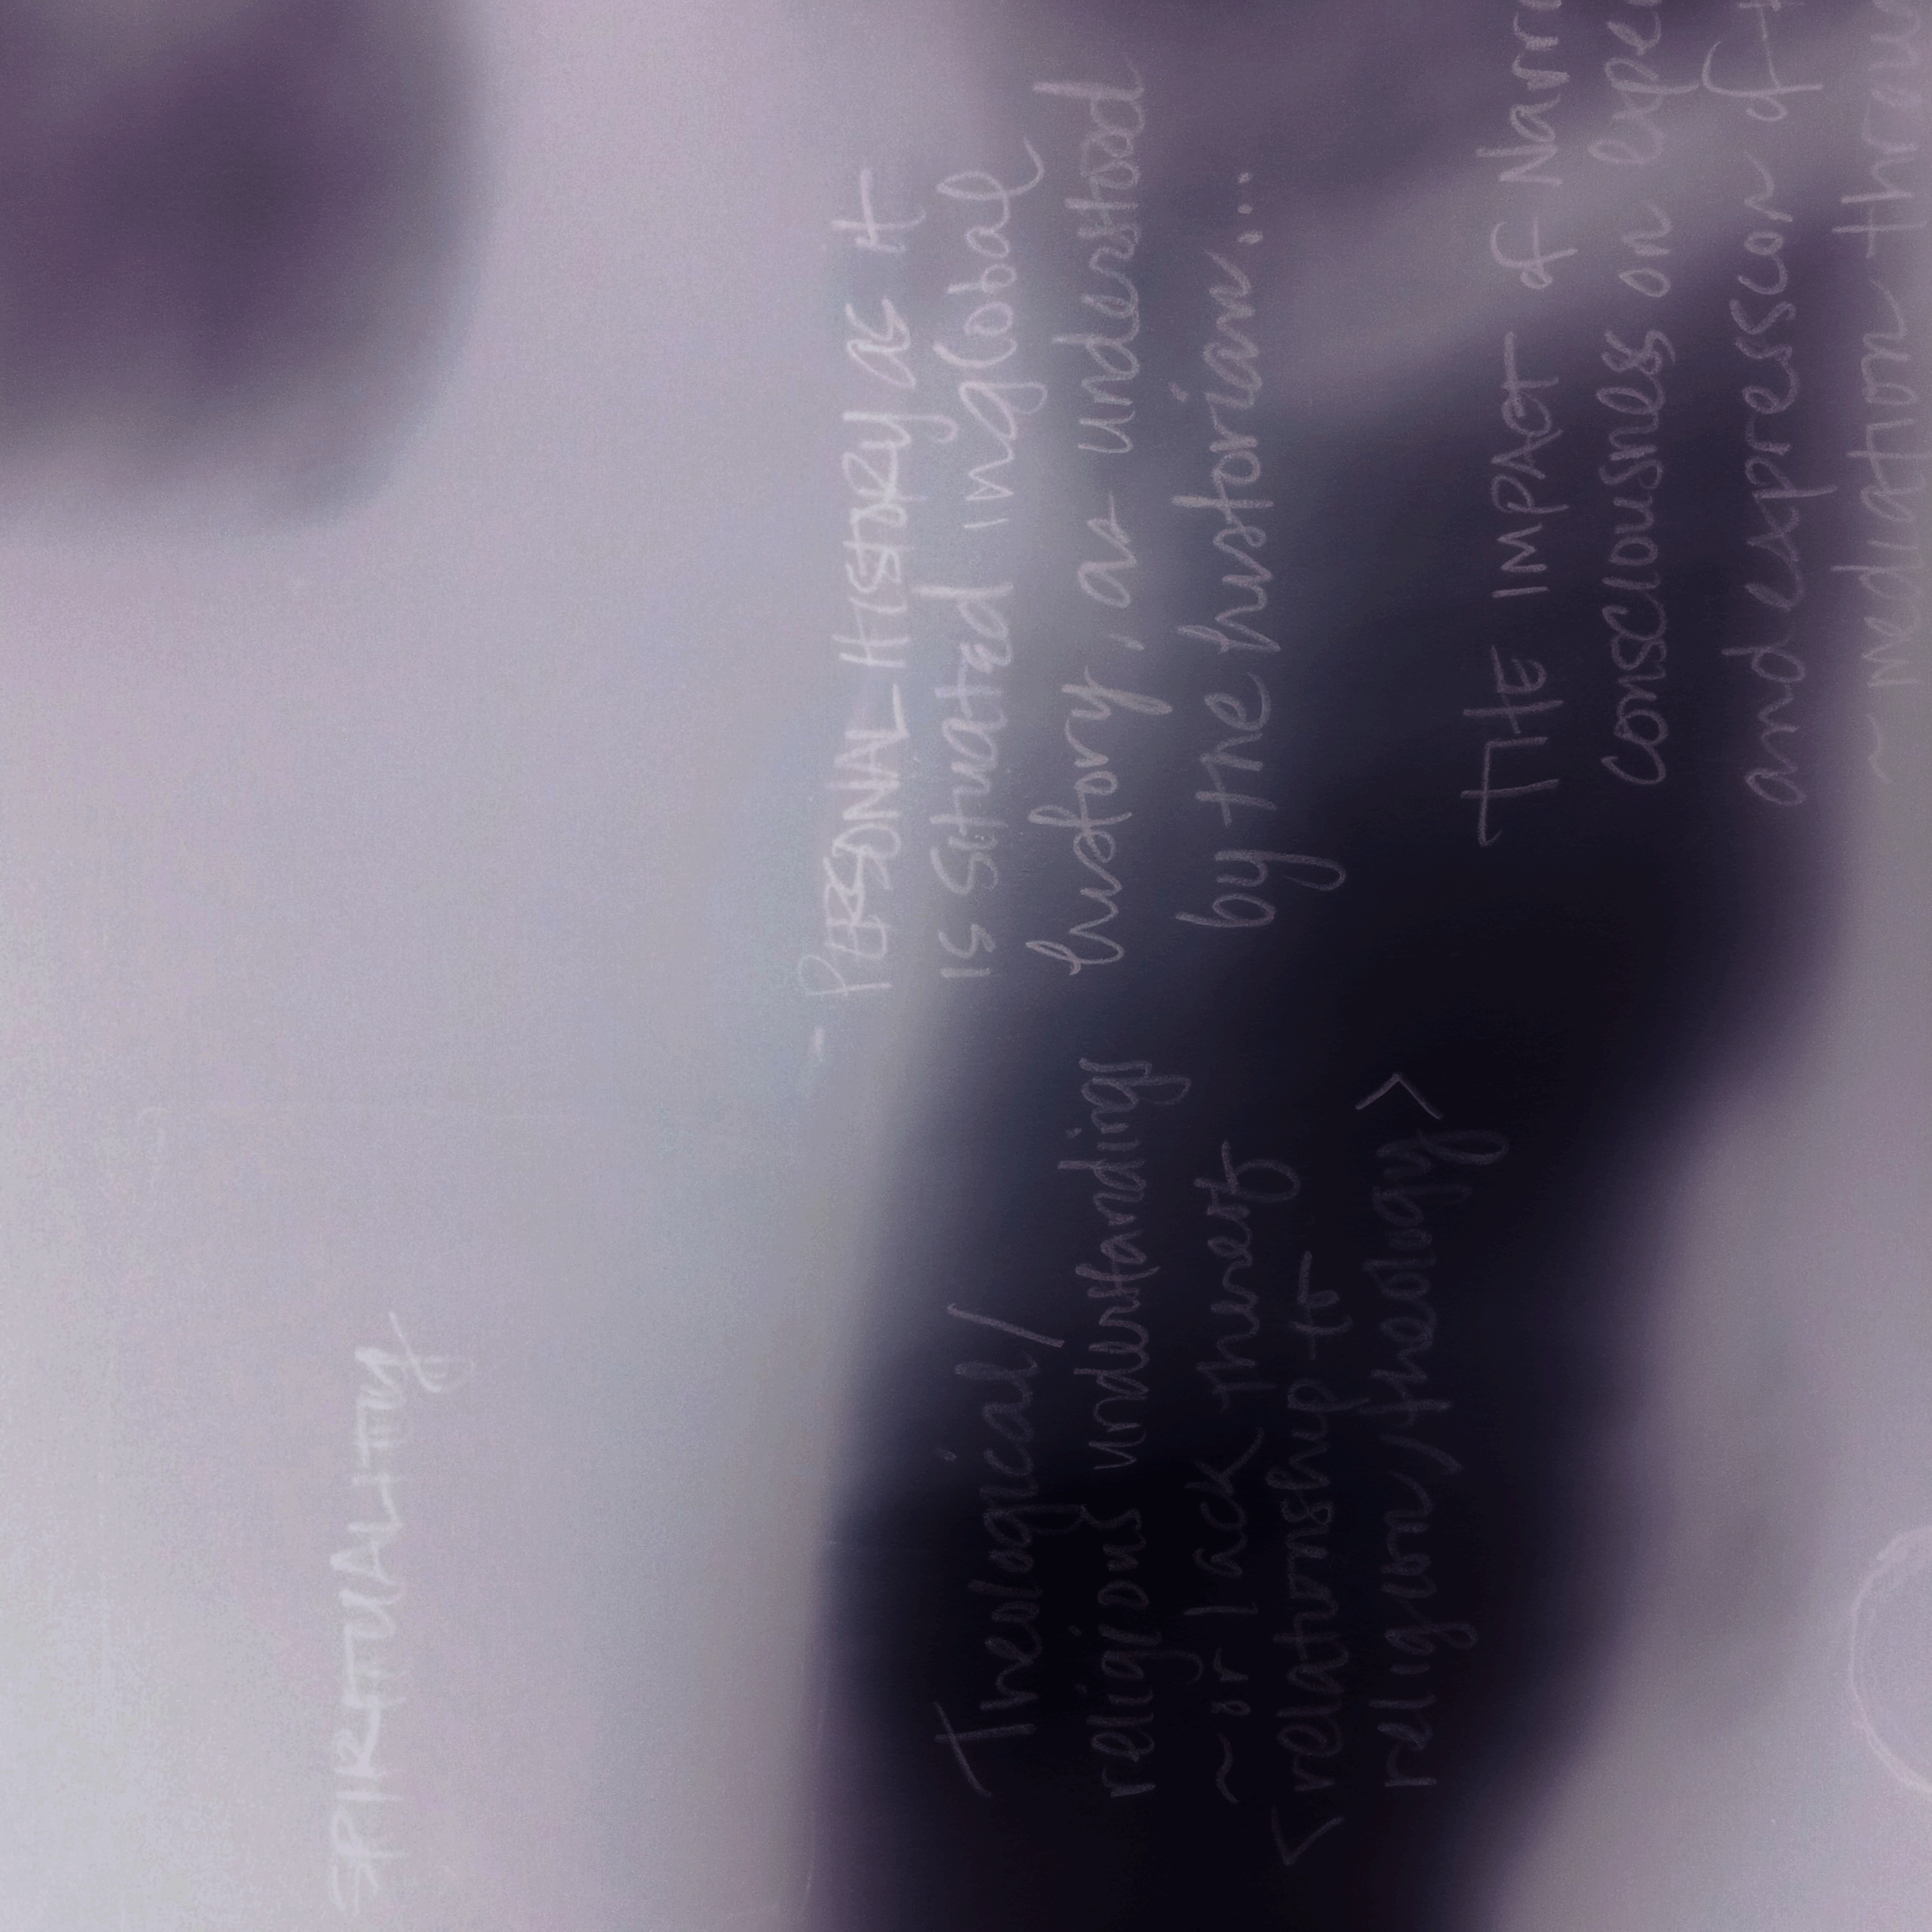 SPIRITUALITY
- PERSONAL HISTORY as it
is situated in global
history, as understood
by the historian...
Theological/
religious understandings
~ or lack thereof
<relationship to
religion/theology>
THE IMPACT of
consciousness on
and expression of
~ mediation